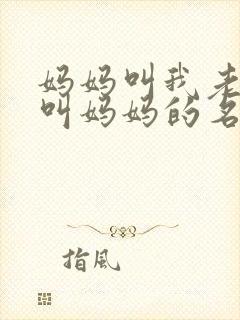 妈妈叫我老
叫妈妈的名
指風